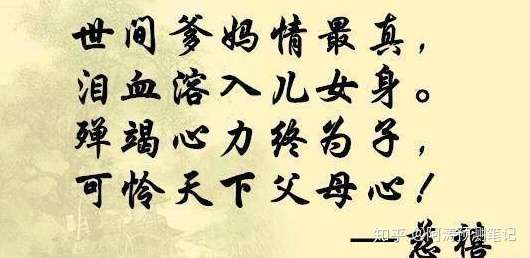 世间爹妈情最真，
泪血溶入儿女身。
殚竭心力终为子，
可怜天下父母心！
一慈禧
知乎 @阿涛预测笔记